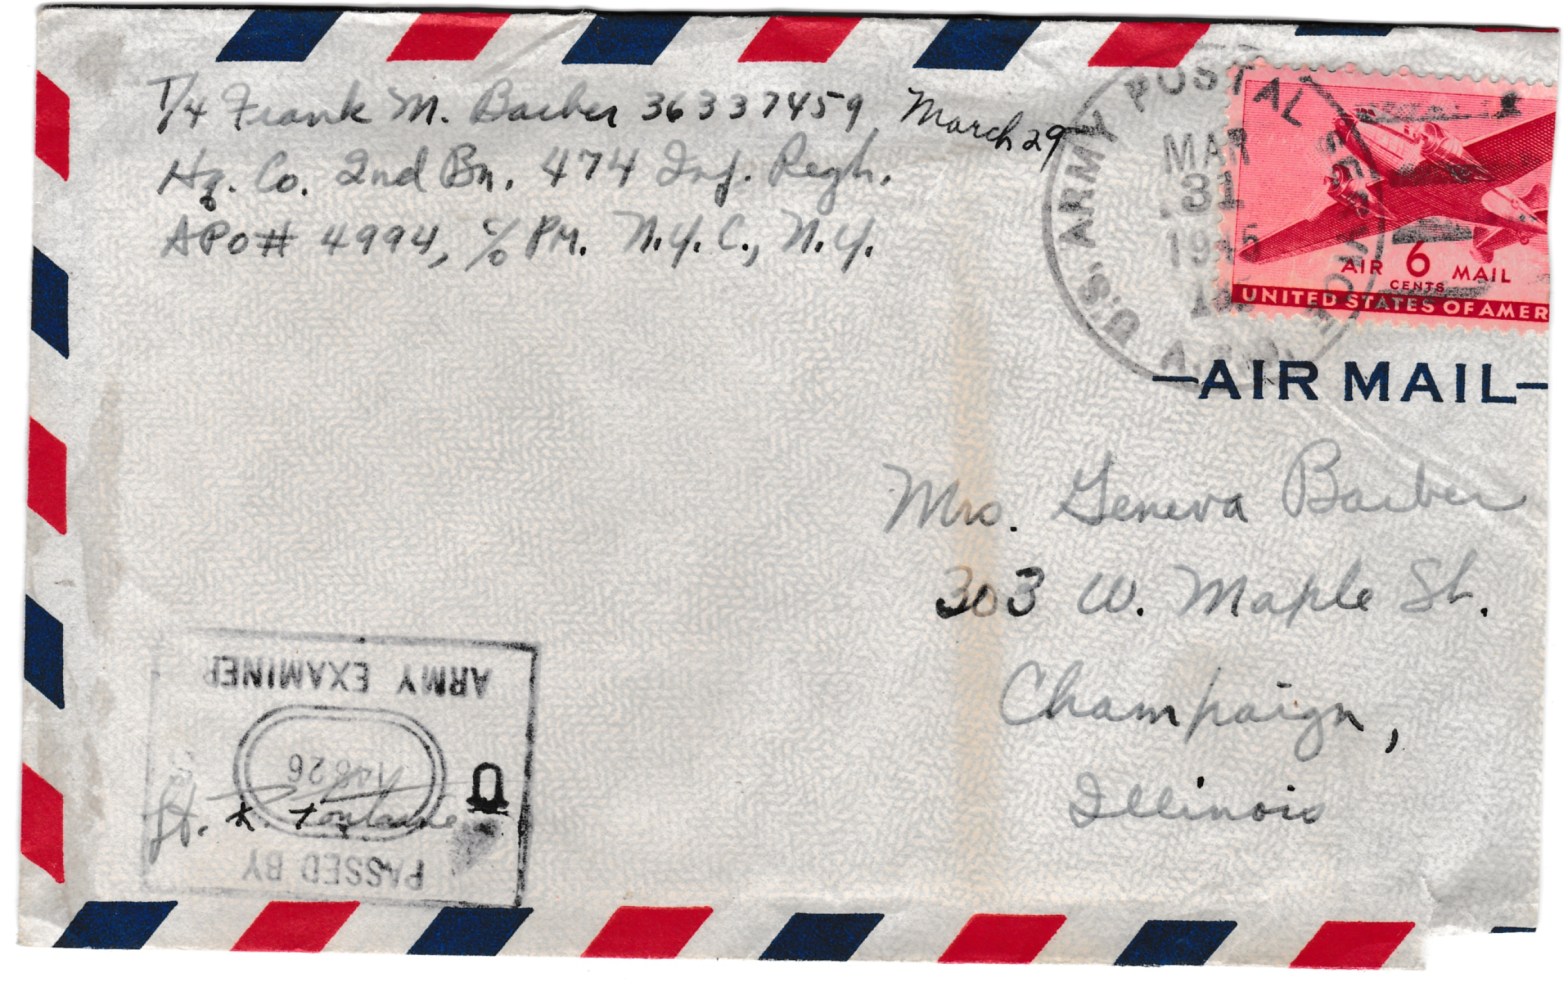 T/4 Frank M. Barber 36337459, March 29
Hq. Co. 2nd Bn. 474 Inf. Regt.
APO# 4994, c/o PM. N.Y.C., N.Y.
U.S. ARMY POSTAL SERVICE
MAR
31
1945
AIR 6 MAIL
CENTS
UNITED STATES OF AMER
—AIR MAIL—
Mrs. Geneva Barber
303 W. Maple St.
Champaign,
Illinois
PASSED BY
ARMY EXAMINER
Lt. R.